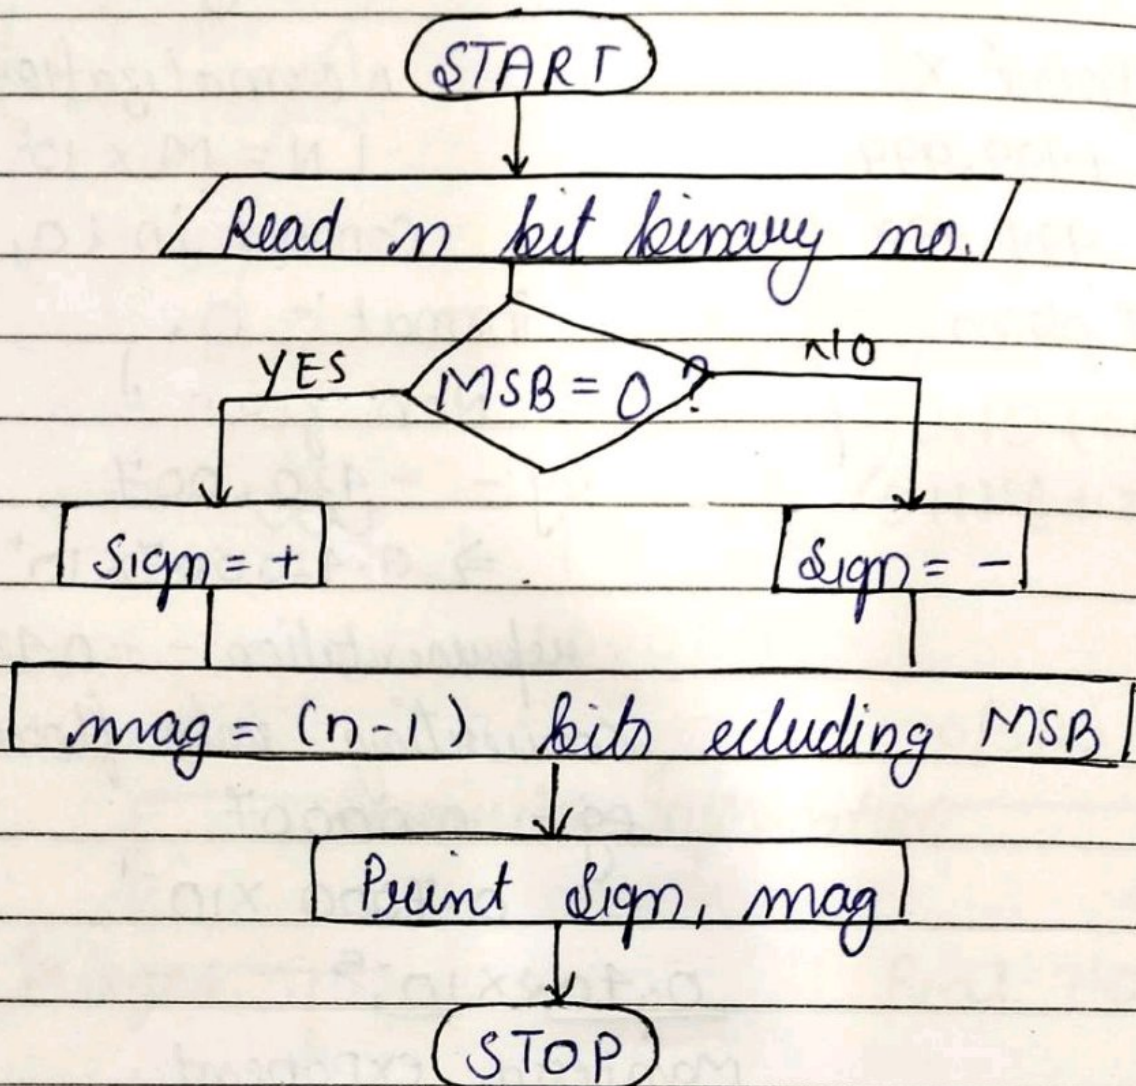 START
Read n bit binary no.
YES
MSB = 0 ?
NO
Sign = +
Sign = -
mag = (n-1) bits ecluding MSB
Print Sign, mag
STOP